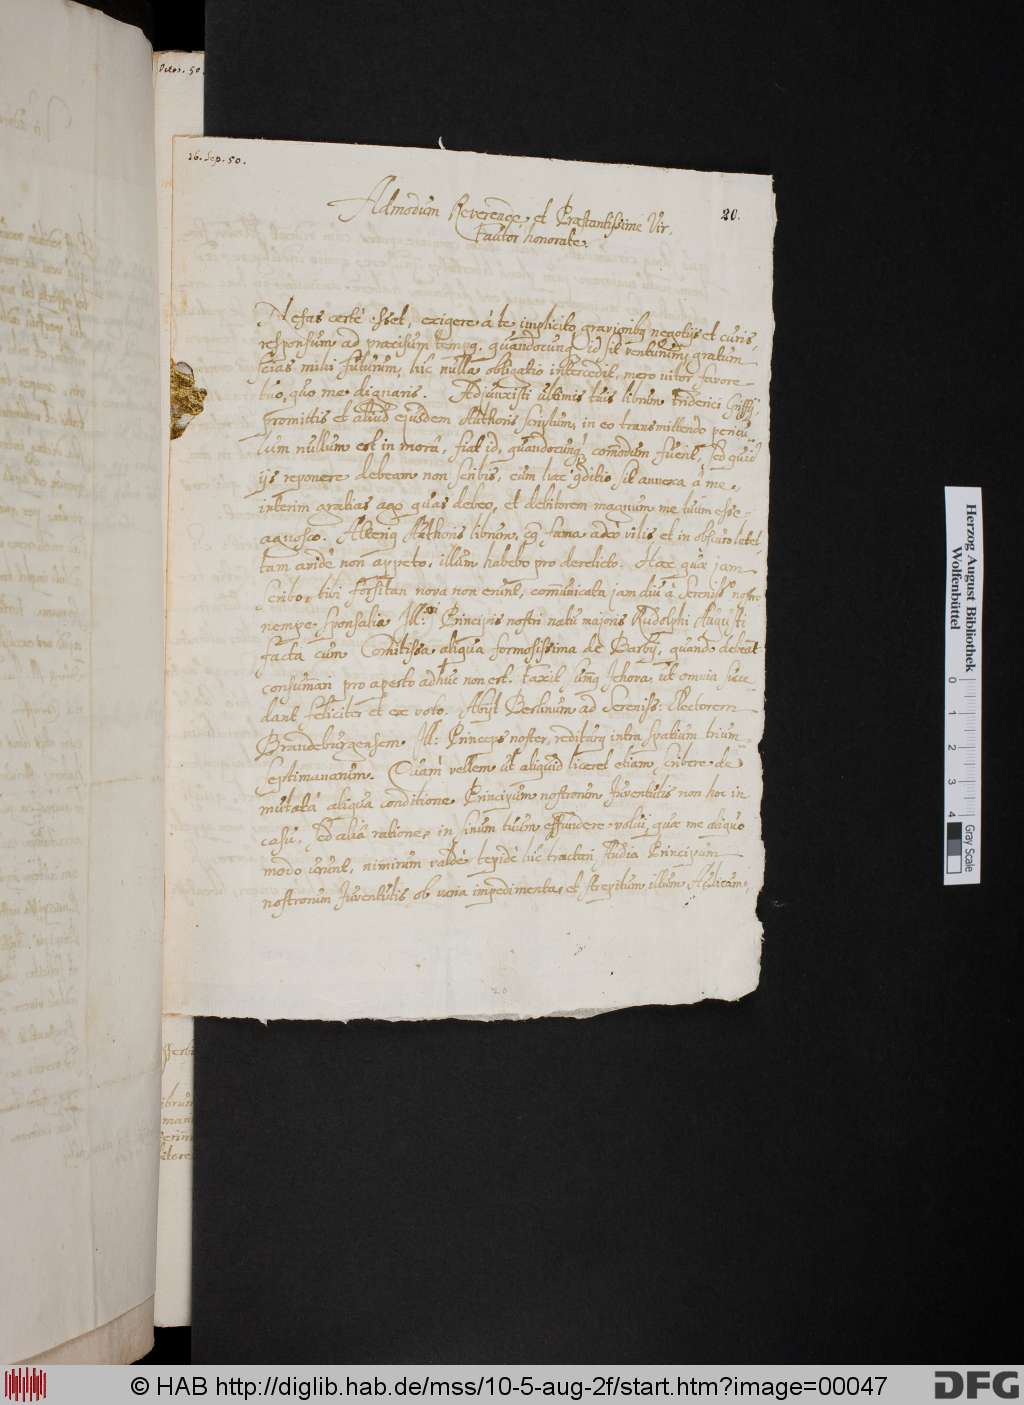 Octor. 50.
16. Sep. 50.
20.
Admodum Reverende et Præstantissime Vir,
Fautor honorate.
Nefas certè esset, exigere à te implicito gravioribq negotijs et curis,
responsum ad præcisum tempq. quandocunq id sit venturum, gratum
scias mihi futurum, hîc nulla obligatio intercedit, mero nitor favore
tuo, quo me dignaris. Adjunxisti ultimis tuis librum Friderici Gryffij,
promittis et aliud ejusdem Authoris scriptum, in eo transmittendo pericu-
lum nullum est in morâ, fiat id, quandocunq; comodum fuerit, sed quid
ijs reponere debeam non scribis, cum hæc 9ditio sit annexa à me,
interim gratias ago quas debeo, et debitorem magnum me tuum esse
agnosco. Alteriq Authoris librum, cq fama adeò vilis et in obscuro latet,
tam avidè non appeto, illum habebo pro derelicto. Hæc quæ jam
scribo, tibi forsitan nova non erunt, comunicata jam diu à Sereniss. nostro
nempe sponsalia Ill:mi Principis nostri natu majoris Rudolphi Augusti
facta cum Comitissa aliqua formosissima de Barby, quando debeant
consumari pro aperto adhuc non est. Faxit sumq Jehova, ut omnia succe-
dant feliciter et ex voto. Abijt Berlinum ad Sereniss: Electorem
Brandeburgensem Ill: Princeps noster, rediturq intra spatium trium
septimanarum. Quàm vellem ut aliquid liceret etiam scribere de
mutatâ aliqua conditione Principum nostrorum Juventutis non hoc in
casu, sed aliâ ratione, in sinum tuum effundere volui, quæ me aliquo
modo urunt, nimirum valdè tepidè hîc tractari studia Principum
nostrorum Juventutis ob varia impedimenta, et strepitum illum Aulicum,
Herzog August Bibliothek
Wolfenbüttel
0 1 2 3 4
Gray Scale
© HAB http://diglib.hab.de/mss/10-5-aug-2f/start.htm?image=00047
DFG